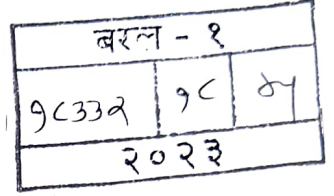 बरल - १
१८३३२ १८ ४५
२०२३